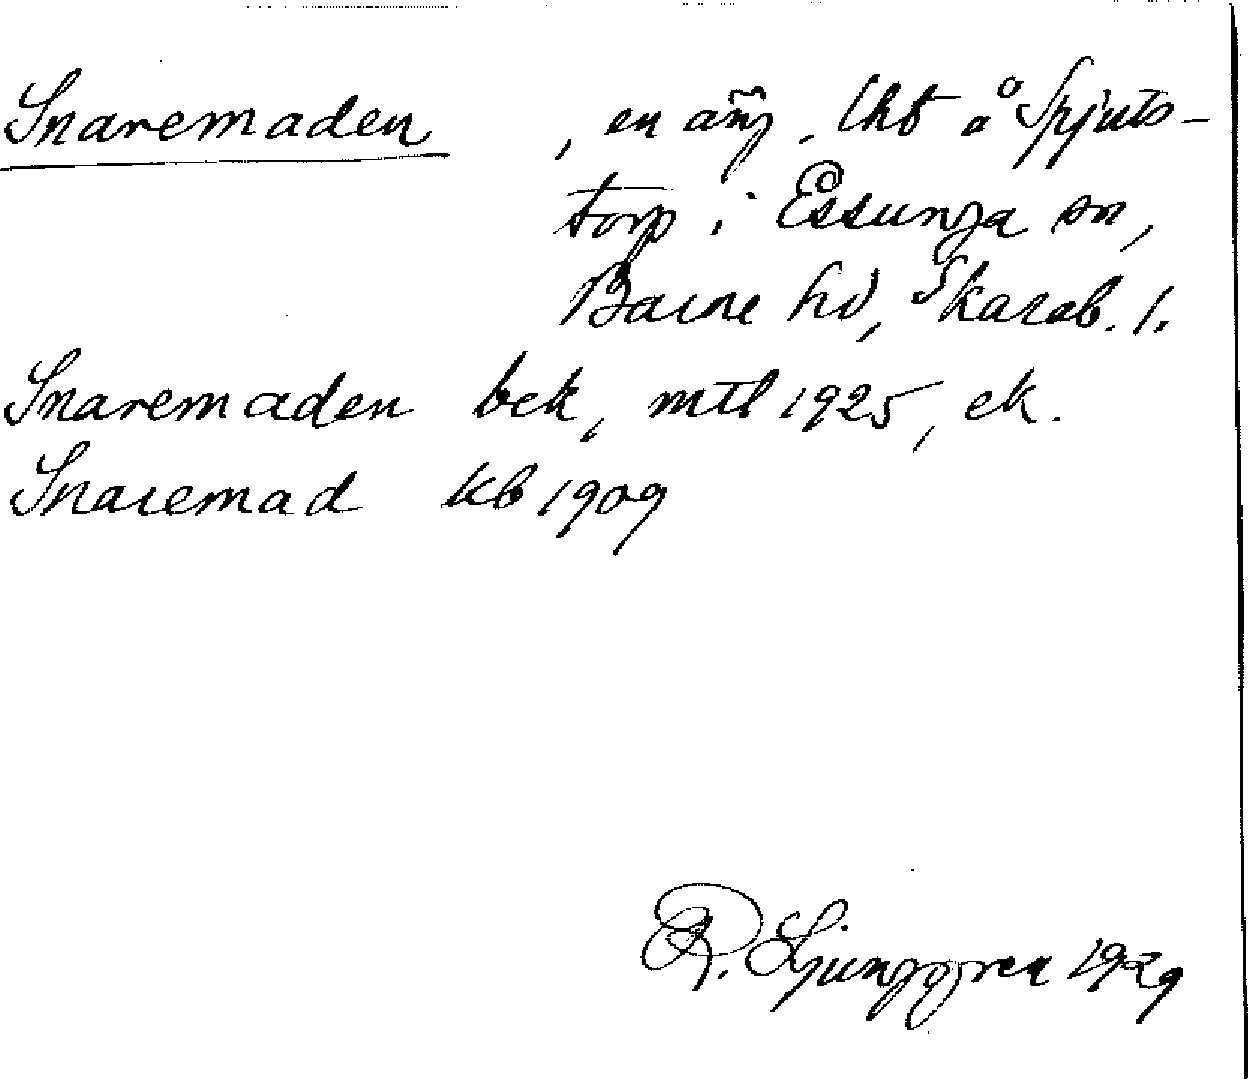 Snaremaden, en äng. lht å Spjuts-
torp i Essunga sn,
Barne hd, Skarab. l.
Snaremaden bek, mtl 1925, ek.
Snaremad kb 1909
R. Ljunggren 1929